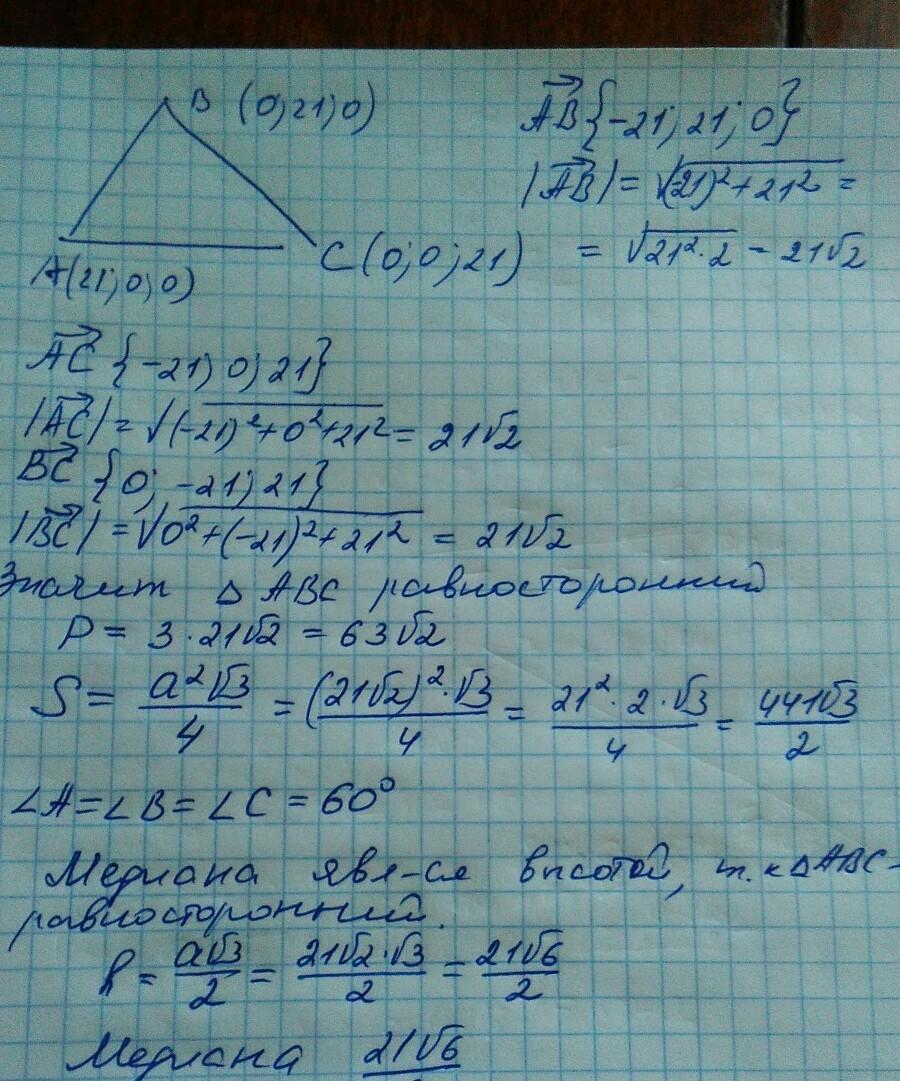 B (0; 21; 0)
A(21; 0; 0)
C (0; 0; 21)
AB{-21; 21; 0}
|AB| = √(-21)² + 21² =
= √21² · 2 = 21√2
AC {-21; 0; 21}
|AC| = √(-21)² + 0² + 21² = 21√2
BC {0; -21; 21}
|BC| = √0² + (-21)² + 21² = 21√2
Значит Δ ABC равносторонний
P = 3 · 21√2 = 63√2
S = a²√3/4 = (21√2)² · √3/4 = 21² · 2 · √3/4 = 441√3/2
∠A = ∠B = ∠C = 60°
Медиана явл-ся высотой, т.к ΔABC-
равносторонний.
h = a√3/2 = 21√2·√3/2 = 21√6/2
Медиана 21√6